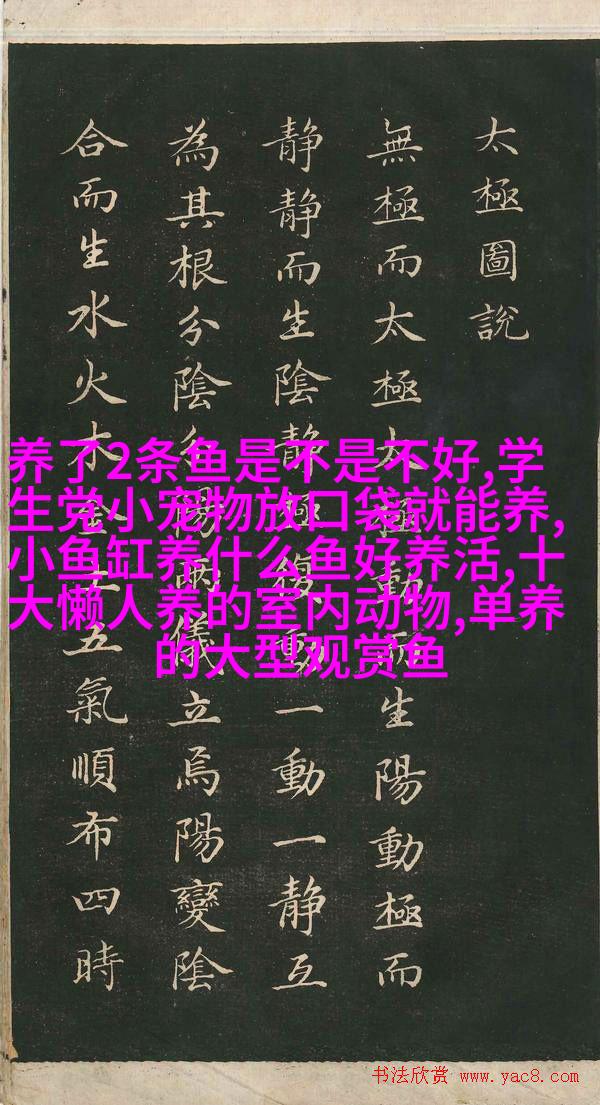 太極圖說
無極而太極太極動而生陽動極而
静静而生陰静極復動一動一静互
為其根分陰分陽兩儀立焉陽變陰
合而生水火木金土五氣順布四時
养了2条鱼是不是不好,学
生党小宠物放口袋就能养,
小鱼缸养什么鱼好养活,十
大懒人养的室内动物,单养
的大型观赏鱼
书法欣赏 www.yac8.com